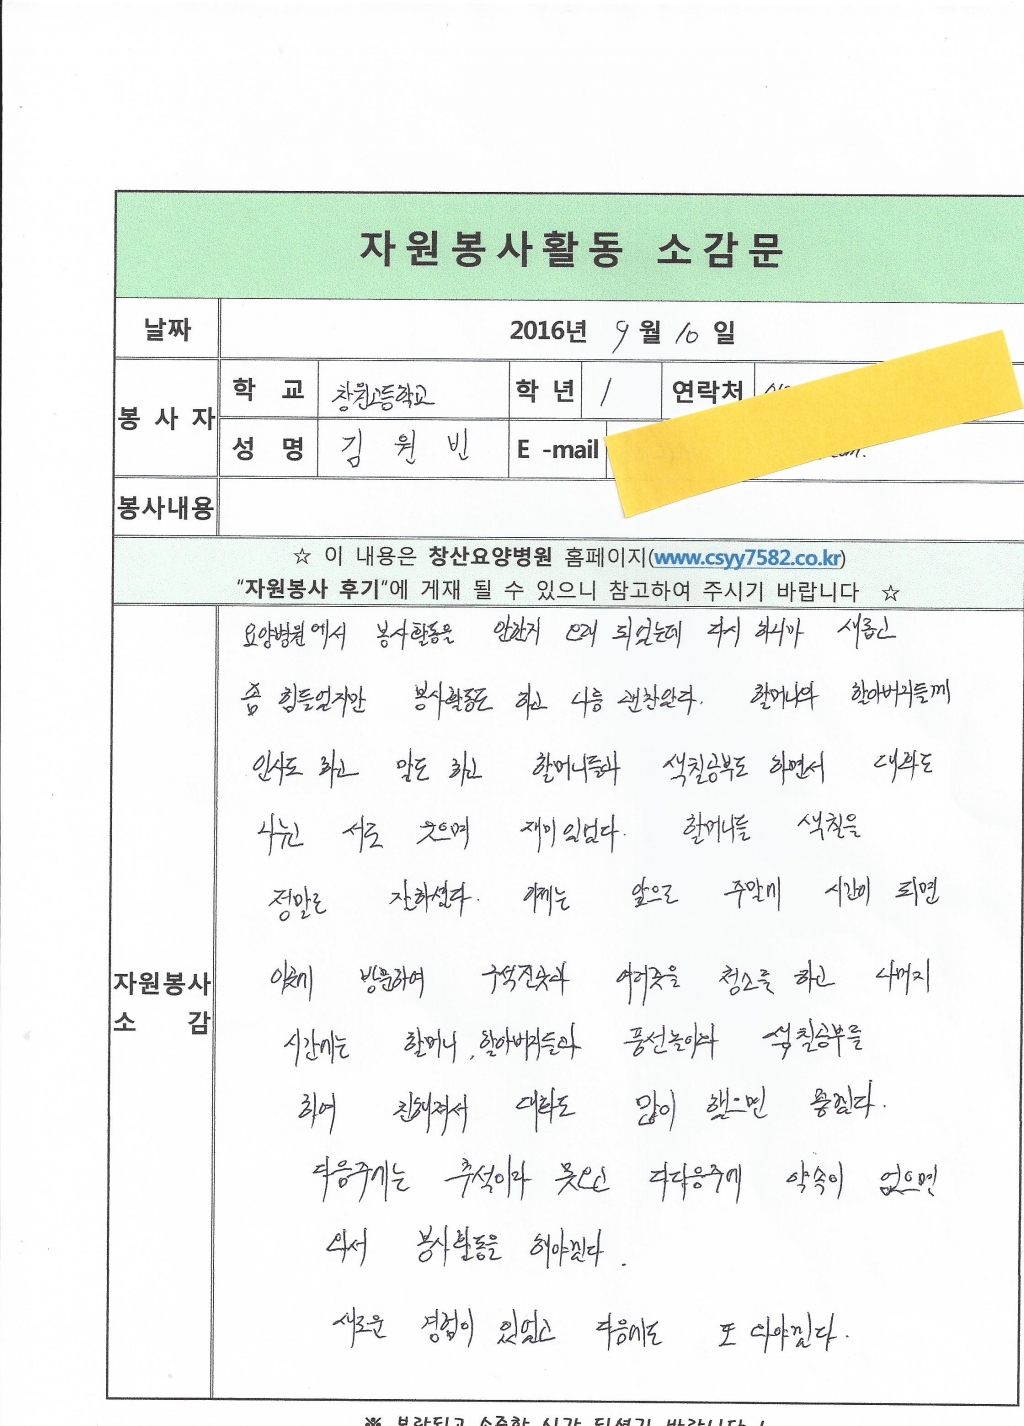 자원봉사활동 소감문
날짜 2016년 9월 10일
봉사자 학교 창원고등학교 학년 1 연락처
성명 김원빈 E-mail
봉사내용
☆ 이 내용은 창산요양병원 홈페이지(www.csyy7582.co.kr)
"자원봉사 후기"에 게재 될 수 있으니 참고하여 주시기 바랍니다 ☆
자원봉사 소감
요양병원에서 봉사활동을 안한지 오래 되었는데 다시 하니까 새롭고
좀 힘들었지만 봉사활동도 하고 나름 괜찮았다. 할머니와 할아버지들께
인사도 하고 말도 하고 할머니들과 색칠공부도 하면서 대화도
나누고 서로 웃으며 재미있었다. 할머니들 색칠을
정말로 잘하셨다. 이제는 앞으로 주말에 시간이 되면
이곳에 방문하여 구석진곳과 여러곳을 청소를 하고 나머지
시간에는 할머니, 할아버지들과 풍선놀이와 색칠공부를
하여 친해져서 대화도 많이 했으면 좋겠다.
다음주에는 추석이라 못오고 다다음주에 약속이 없으면
와서 봉사활동을 해야겠다.
새로운 경험이 있었고 다음에도 또 와야겠다.